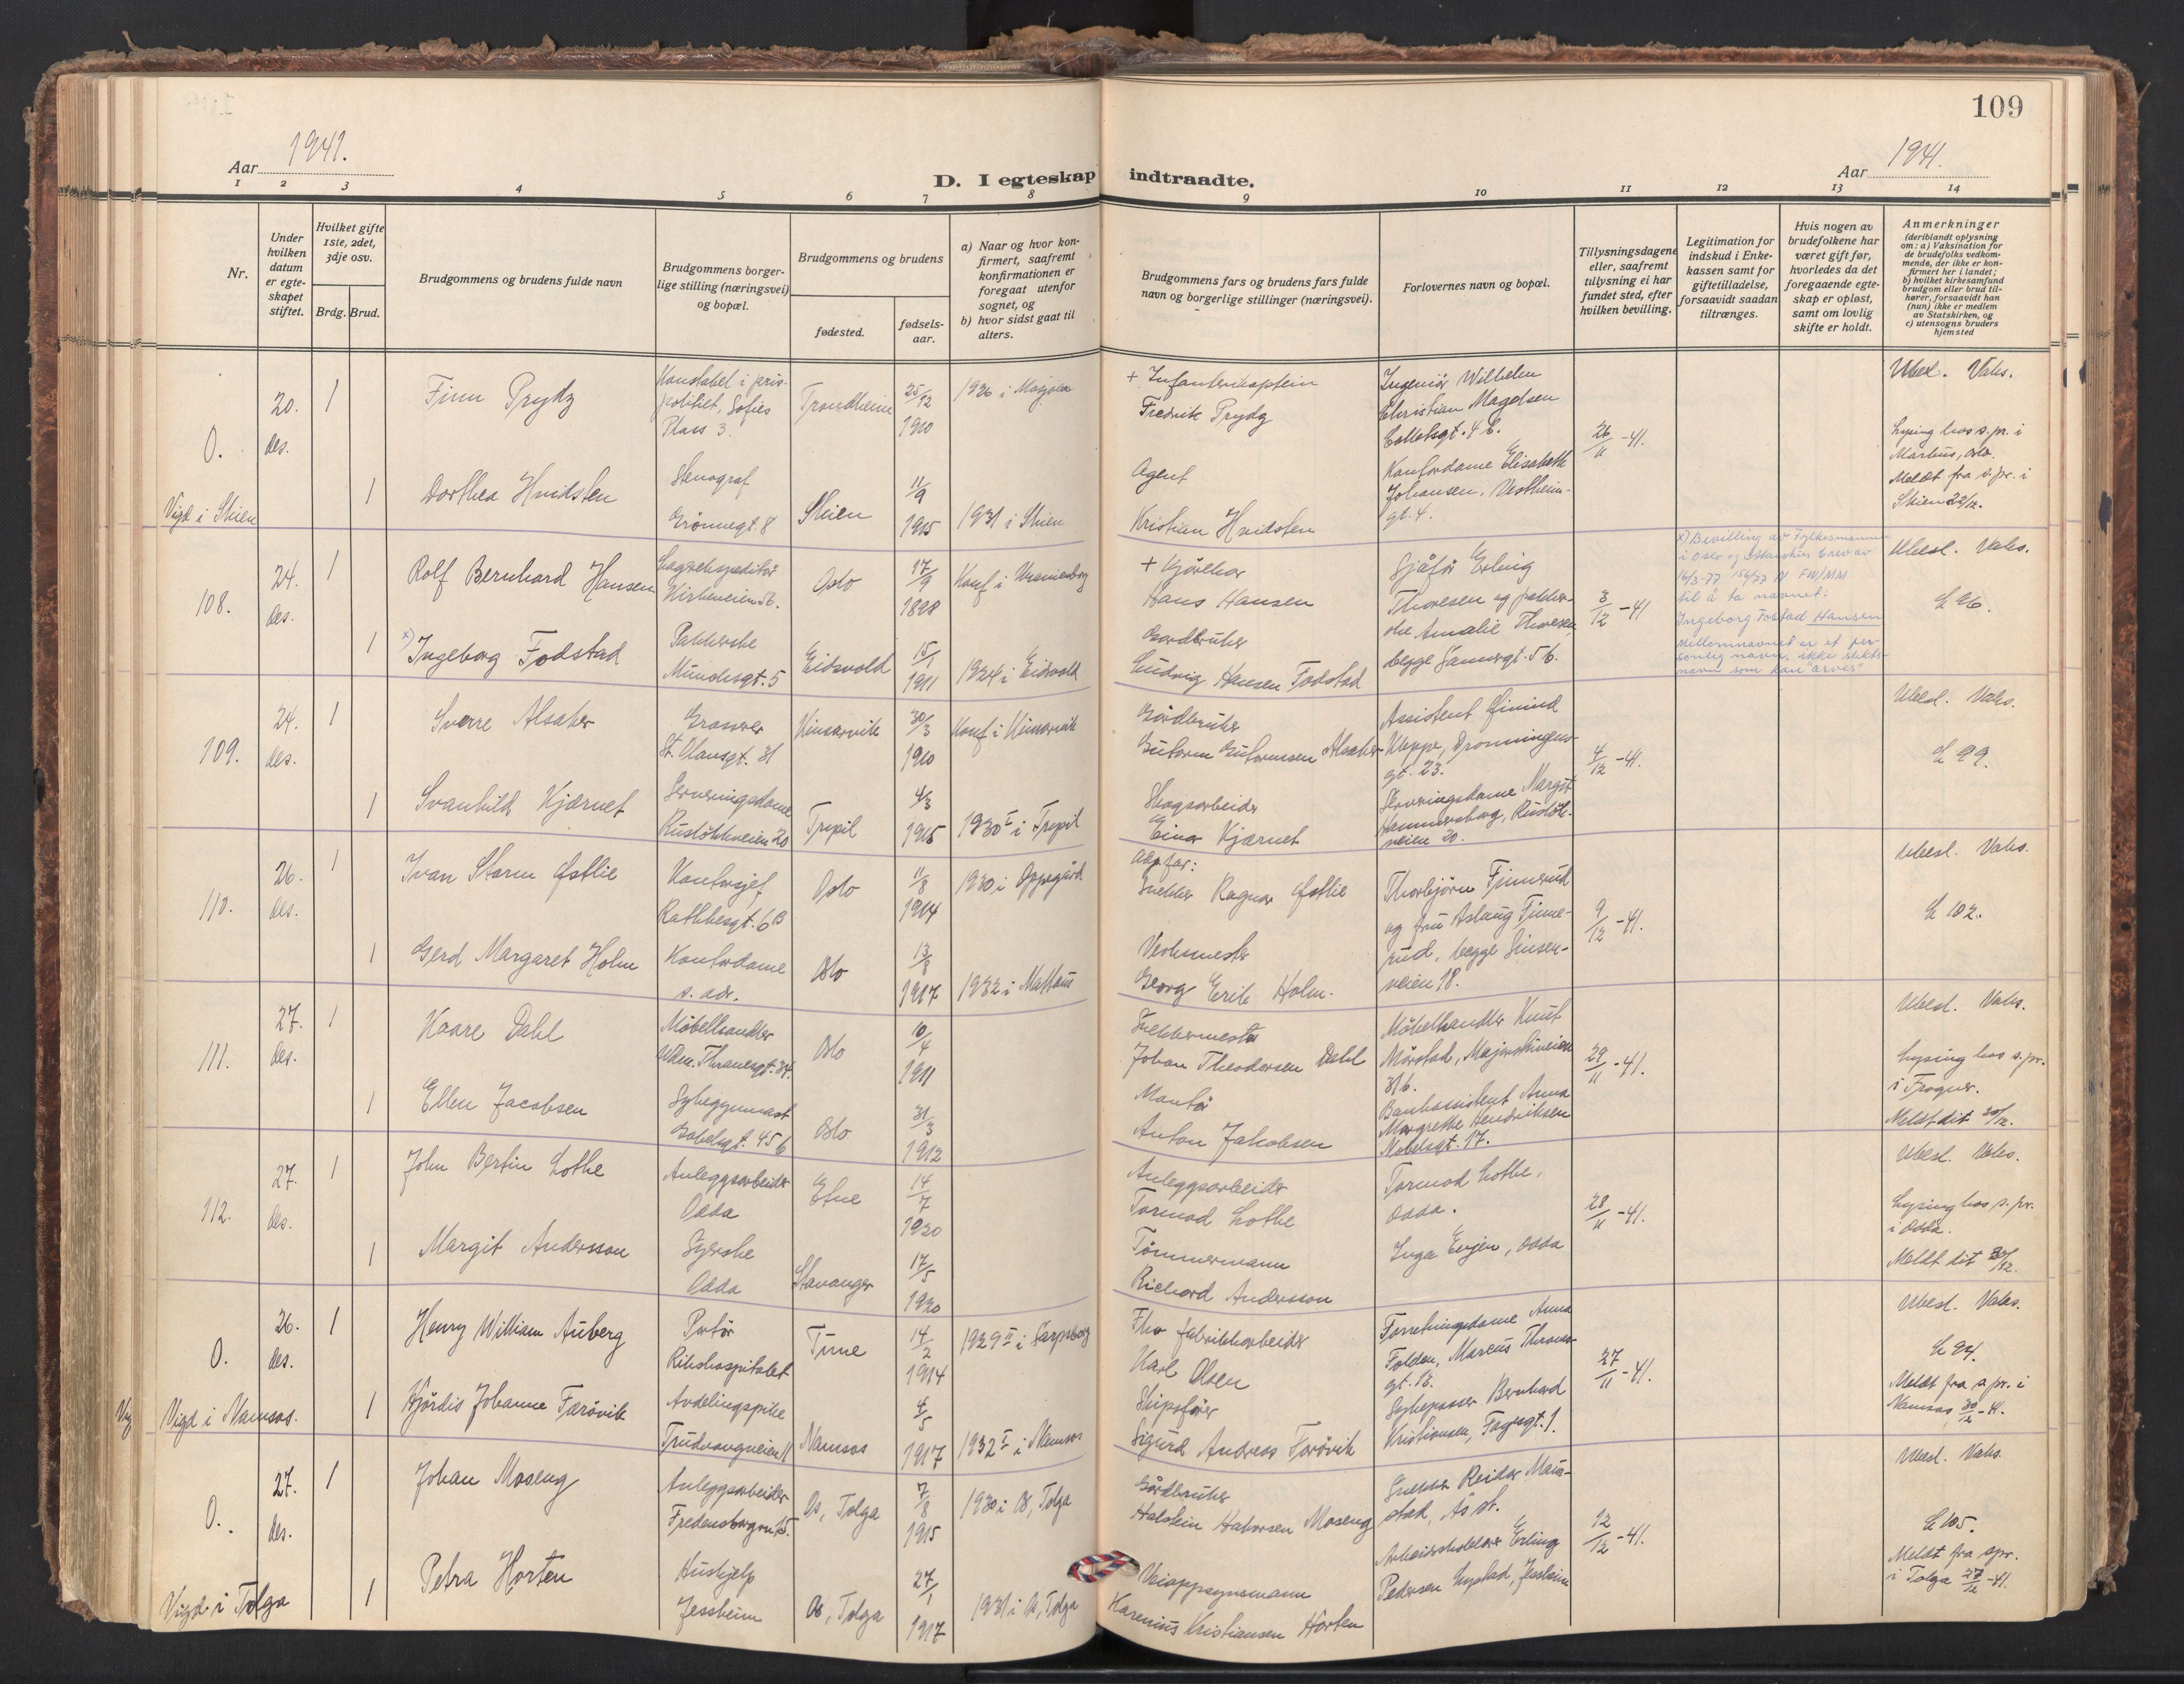 109
Aar 1941.
D. I egteskap indtraadte.
Aar 1941.
1 2 3 4 5 6 7 8 9 10 11 12 13 14
Nr.
Under hvilken datum er egteskapet stiftet.
Hvilket gifte 1ste, 2det, 3dje osv.
Brdg. Brud.
Brudgommens og brudens fulde navn
Brudgommens borgerlige stilling (næringsvei) og bopæl.
Brudgommens og brudens
fødested.
fødselsaar.
a) Naar og hvor konfirmert, saafremt konfirmationen er foregaat utenfor sognet, og
b) hvor sidst gaat til alters.
Brudgommens fars og brudens fars fulde navn og borgerlige stillinger (næringsvei).
Forlovernes navn og bopæl.
Tillysningsdagene eller, saafremt tillysning ei har fundet sted, efter hvilken bevilling.
Legitimation for indskud i Enkekassen samt for giftetilladelse, forsaavidt saadan tiltrænges.
Hvis nogen av brudefolkene har været gift før, hvorledes da det foregaaende egteskap er opløst, samt om lovlig skifte er holdt.
Anmerkninger
(deriblandt oplysning om: a) Vaksination for de brudefolks vedkommende, der ikke er konfirmert her i landet; b) hvilket kirkesamfund brudgom eller brud tilhører, forsaavidt han (hun) ikke er medlem av Statskirken, og c) utensogns bruders hjemsted
O.
20. des.
1
Finn Prydz
Konstabel i prispolitiet, Sofies Plass 3.
Trondheim
25/12 1910
1926 i Mosjøen
+ Infanterikaptein
Fredrik Prydz
Ingeniør Wilhelm
Christian Magelsen
26/11 -41.
Ubesl. Vaks.
Lysing hos s.pr. i
Markus, Oslo.
Meldt fra s.pr. i
Skien 22/12.
Vigd i Skien
1
Dorthea Hvidsten
Stenograf
Grønnegt. 8
Skien
11/9 1915
1931 i Skien
Agent
Kristian Hvidsten
Kontordame Elisabeth
Johansen, Vestheimgt. 4.
108.
24. des.
1
Rolf Bernhard Hansen
Lagerekspeditør
Kirkeveien 56.
Oslo
17/9 1898
Konf i Uranienborg
+ Kjørekar
Hans Hansen
Sjåfør Erling
Thoresen og pakkerske Amalie Thoresen
begge Sannergt. 56.
3/12 -41
x) Bevilling av Fylkesmannen
i Oslo og Akershus brev av
16/3-77 156/77 N FW/MM
til å ta navnet:
Ingeborg Fostad Hansen
Mellomnavnet er et personlig navn, ikke slektsnavn som kan "arves"
Ubesl. Vaks.
L 96.
1
x) Ingeborg Fodstad
Pakkerske
Munchsgt. 5
Eidsvold
15/1 1911
1924 i Eidsvold
Gårdbruker
Ludvig Hansen Fodstad
109.
24. des.
1
Sverre Alsaker
Grosserer
St. Olavsgt. 31
Kinsarvik
30/3 1910
Konf i Kinsarvik
Gårdbruker
Guttorm Guttormsen Alsaker
Assistent Eivind
Kleppe, Dronningensgt. 23.
4/12 -41.
Ubesl. Vaks.
L 99.
1
Svanhild Kjærnet
Serveringsdame
Ruseløkkveien 20
Trysil
4/3 1915
1930 I i Trysil
Skogsarbeider
Einar Kjærnet
Serveringsdame Margit
Hammersborg, Ruseløkveien 20.
110.
26. des.
1
Ivan Storm Østlie
Kontorsjef
Rathkesgt. 6B
Oslo
11/8 1914
1930 i Oppegård
Adp.far:
Snekker Ragnar Østlie
Thorbjørn Finnerud
og fru Aslaug Finnerud, begge Sinsenveien 18.
9/12 -41.
Ubesl. Vaks.
L 102.
1
Gerd Margaret Holm
Kontordame
s. adr.
Oslo
13/8 1917
1932 i Matteus
Verksmester
Georg Erik Holm.
111.
27. des.
1
Kaare Dahl
Møbelhandler
Wdm. Thranesgt. 34.
Oslo
10/4 1911
Snekkermester
Johan Theodorsen Dahl
Møbelhandler Knut
Mørstad, Majorstuveien
31b.
29/11 -41.
Ubesl. Vaks.
Lysing hos s.pr.
i Frogner.
Meldt dit 30/12.
1
Ellen Jacobsen
Sykegymnast
Gabelsgt. 45 b
Oslo
31/3 1912
Montør
Anton Jakobsen
Bankassistent Anna
Margrethe Hendriksen
Nobelsgt. 17.
112.
27. des.
1
John Bertin Lothe
Anleggsarbeider
Odda
Etne
14/7 1920
Anleggsarbeider
Tormod Lothe
Tormod Lothe,
Odda.
28/11 -41.
Ubesl. Vaks.
Lysing hos s.pr.
i Odda.
Meldt dit 30/12.
1
Margit Andersson
Syerske
Odda
Stavanger
17/5 1920
Tømmermann
Richard Andersson
Inga Evjen, Odda
O.
26. des.
1
Henry William Auberg
Portør
Rikshospitalet
Tune
14/2 1914
1929 II i Sarpsborg
Fhv fabrikkarbeider
Karl Olsen
Forretningsdame Anna
Folden, Marcus Thranesgt. 13.
27/11 -41.
Ubesl. Vaks.
L 94.
Meldt fra s.pr. i
Namsos 30/12 -41.
Vig Vigd i Namsos.
1
Hjørdis Johanne Farøvik
Avdelingspike
Trudvangveien 11
Namsos
4/5 1917
1932 I i Namsos
Skipsfører
Sigurd Andreas Farøvik
Sykepasser Bernhard
Kristiansen, Fagergt. 1.
O.
27. des.
1
Johan Moseng
Anleggsarbeider
Fredensborgvn 15.
Os, Tolga
7/8 1915
1930 i Os, Tolga
Gårdbruker
Halstein Halvorsen Moseng
Snekker Reidar Maurstad, Ås st.
12/12 -41.
Ubesl. Vaks.
L 105.
Meldt fra spr.
i Tolga 27/12 -41.
Vigd i Tolga
1
Petra Horten
Hushjelp
Jessheim
Os, Tolga
27/1 1917
1931 i Os, Tolga
Veioppsynsmann
Karenius Kristiansen Horten
Erling
Pedersen Lystad, Jessheim